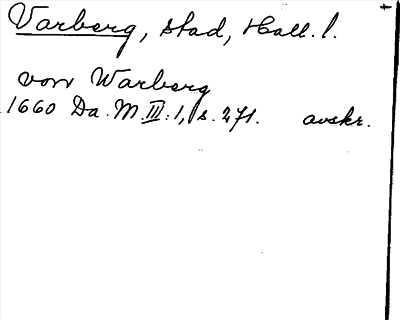 Varberg, stad, Hall. l.
von Warberg
1660 Da. M. III:1, s. 271. avskr.